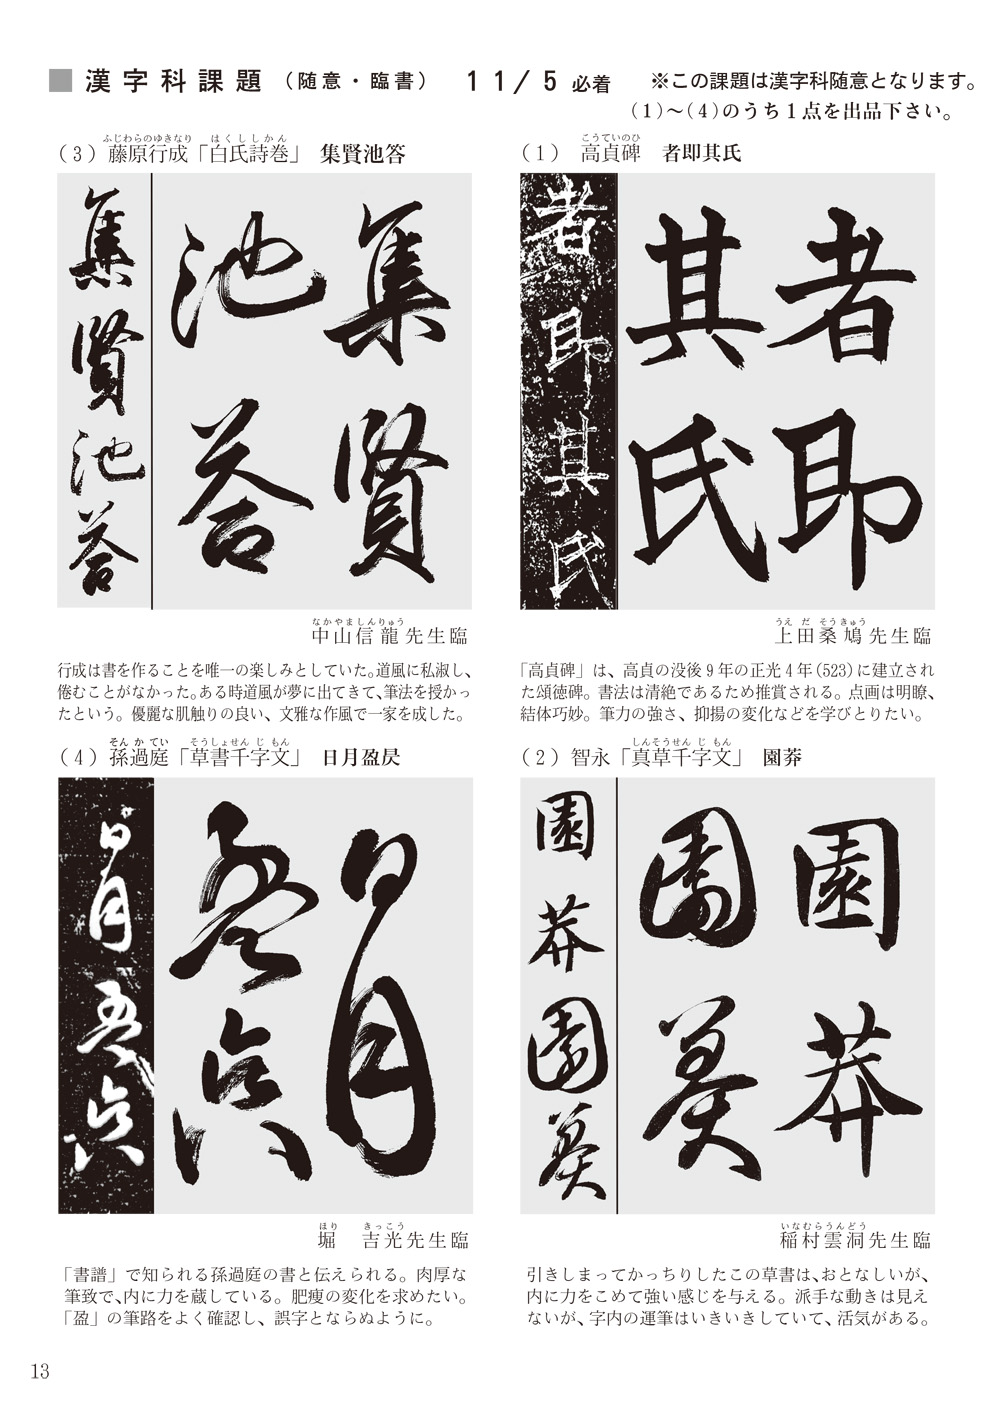 ■漢字科課題(随意・臨書) 11/5必着 ※この課題は漢字科随意となります。
(1)~(4)のうち1点を出品下さい。
こうていのひ
(1) 高貞碑 者即其氏
者即其氏
者即
其氏
うえだ そうきゅう
上田桑鳩先生臨
「高貞碑」は、高貞の没後9年の正光4年(523)に建立され
た頌徳碑。書法は清絶であるため推賞される。点画は明瞭、
結体巧妙。筆力の強さ、抑揚の変化などを学びとりたい。
しんそうせんじもん
(2)智永「真草千字文」 園莽
園莽園莽
園莽
園莽
いなむらうんどう
稲村雲洞先生臨
引きしまってかっちりしたこの草書は、おとなしいが、
内に力をこめて強い感じを与える。派手な動きは見え
ないが、字内の運筆はいきいきしていて、活気がある。
ふじわらのゆきなり はくししかん
(3)藤原行成「白氏詩巻」 集賢池答
集賢池答
集賢
池答
なかやましんりゅう
中山信龍先生臨
行成は書を作ることを唯一の楽しみとしていた。道風に私淑し、
倦むことがなかった。ある時道風が夢に出てきて、筆法を授かっ
たという。優麗な肌触りの良い、文雅な作風で一家を成した。
そんかてい そうしょせんじもん
(4)孫過庭「草書千字文」 日月盈昃
日月盈昃
日月
盈昃
ほり きっこう
堀 吉光先生臨
「書譜」で知られる孫過庭の書と伝えられる。肉厚な
筆致で、内に力を蔵している。肥痩の変化を求めたい。
「盈」の筆路をよく確認し、誤字とならぬように。
13